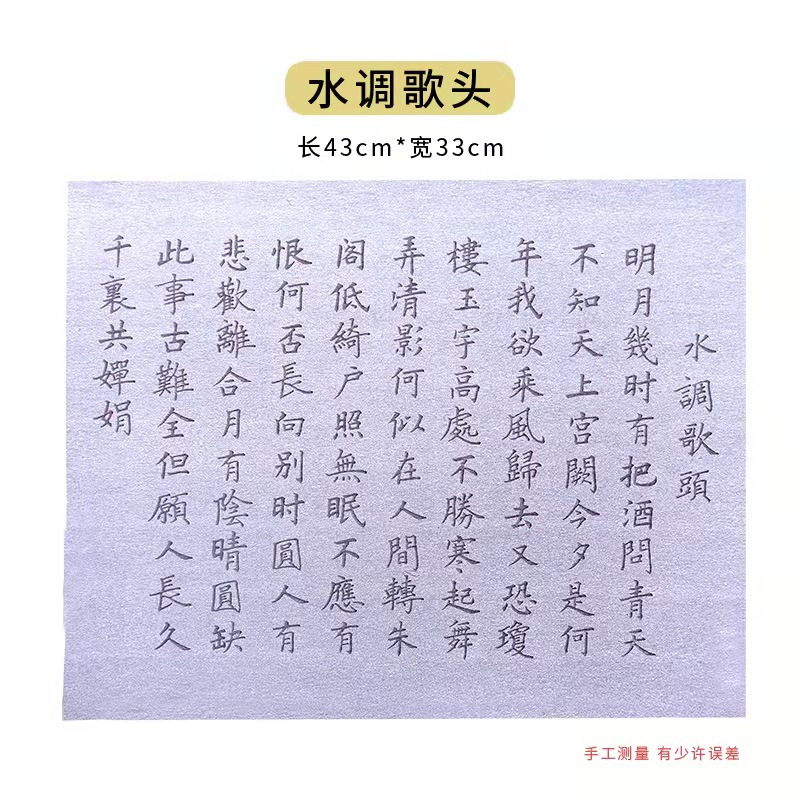 水调歌头
长43cm*宽33cm
水調歌頭
明月幾时有把酒問青天
不知天上宫闕今夕是何
年我欲乘風歸去又恐瓊
樓玉宇高處不勝寒起舞
弄清影何似在人間轉朱
阁低綺户照無眠不應有
恨何否長向别时圓人有
悲歡離合月有陰晴圓缺
此事古難全但願人長久
千裏共嬋娟
手工测量 有少许误差